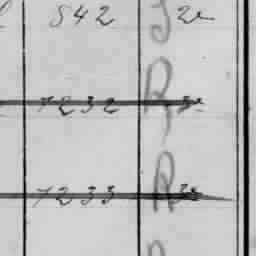 542 J 2e
7232 R 3e
7233 R 3e
R